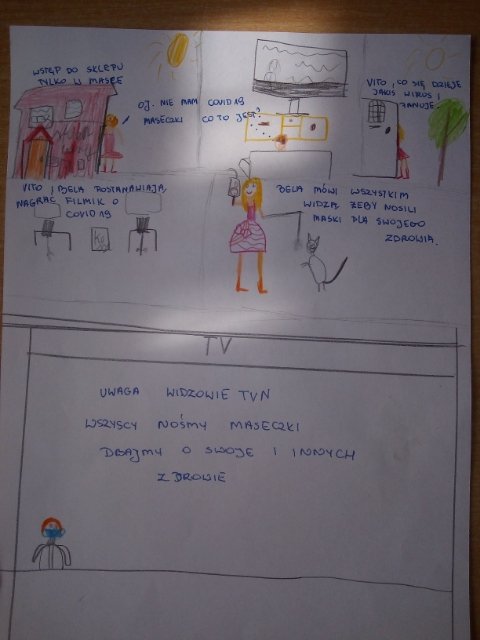 WSTĘP DO SKLEPU
TYLKO W MASCE
OJ. NIE MAM
MASECZKI
COVID19
CO TO JEST?
VITO, CO SIĘ DZIEJE
JAKIŚ WIRUS
PANUJE.
VITO I BELA POSTANAWIAJĄ
NAGRAĆ FILMIK O
COVID19
BELA MÓWI WSZYSTKIM
WIDZĄ ŻEBY NOSILI
MASKI DLA SWOJEGO
ZDROWIA.
TV
UWAGA WIDZOWIE TVN
WSZYSCY NOŚMY MASECZKI
DBAJMY O SWOJE I INNYCH
ZDROWIE